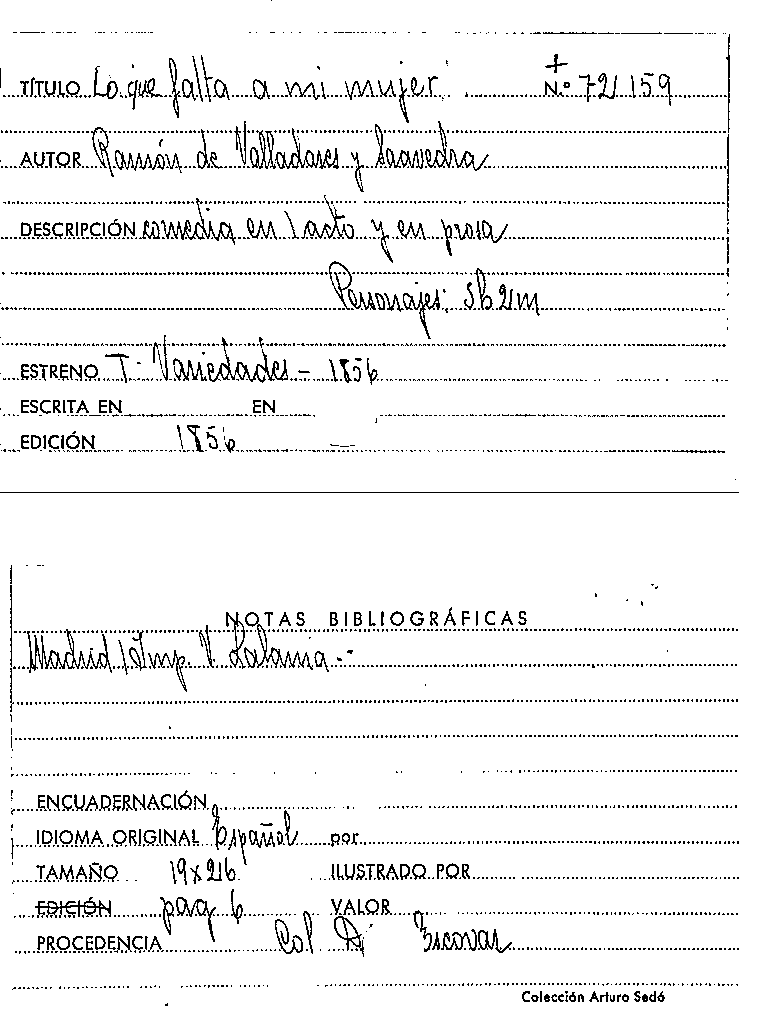 +
TÍTULO Lo que falta a mi mujer. Nº 72/159
AUTOR Ramón de Valladares y Saavedra
DESCRIPCIÓN comedia en 1 acto y en prosa
Personajes: 5h 2m
ESTRENO T. Variedades - 1856
ESCRITA EN EN
EDICIÓN 1856 —
NOTAS BIBLIOGRÁFICAS
Madrid / Imp. V. Lalama.-
ENCUADERNACIÓN
IDIOMA ORIGINAL Español por
TAMAÑO 19x26 ILUSTRADO POR
EDICIÓN pag 6 VALOR
PROCEDENCIA Col Escovar
Colección Arturo Sedó